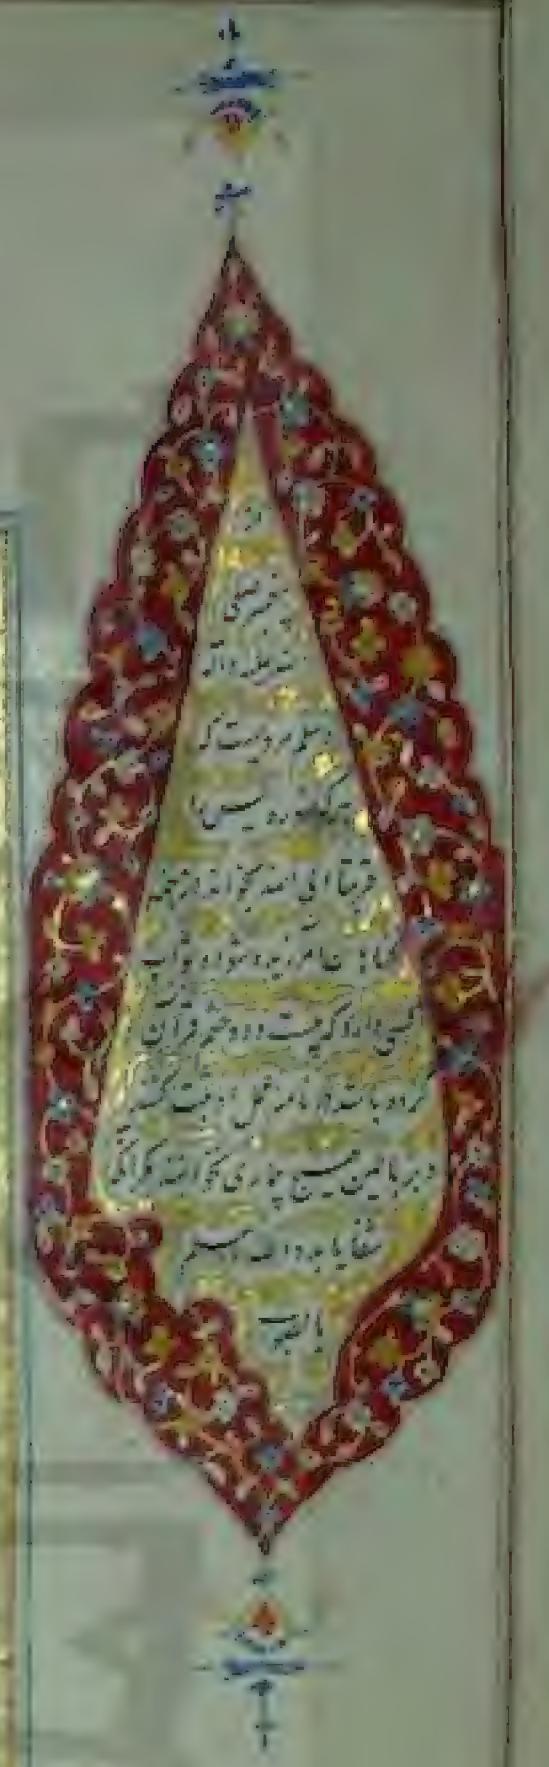 از
پیغمبر صلی
الله علیه و آله
و سلم مرویست که
هر که سوره یس را
قربتا الی الله بخواند از جمیع
گناهان آمرزیده شود و ثواب
کسی دارد که بیست و دو ختم قرآن
کرده باشد در نامه عمل او ثبت کنند
و بر بالین هیچ بیماری نخوانند مگر آنکه
شفا یابد والله اعلم
بالصواب